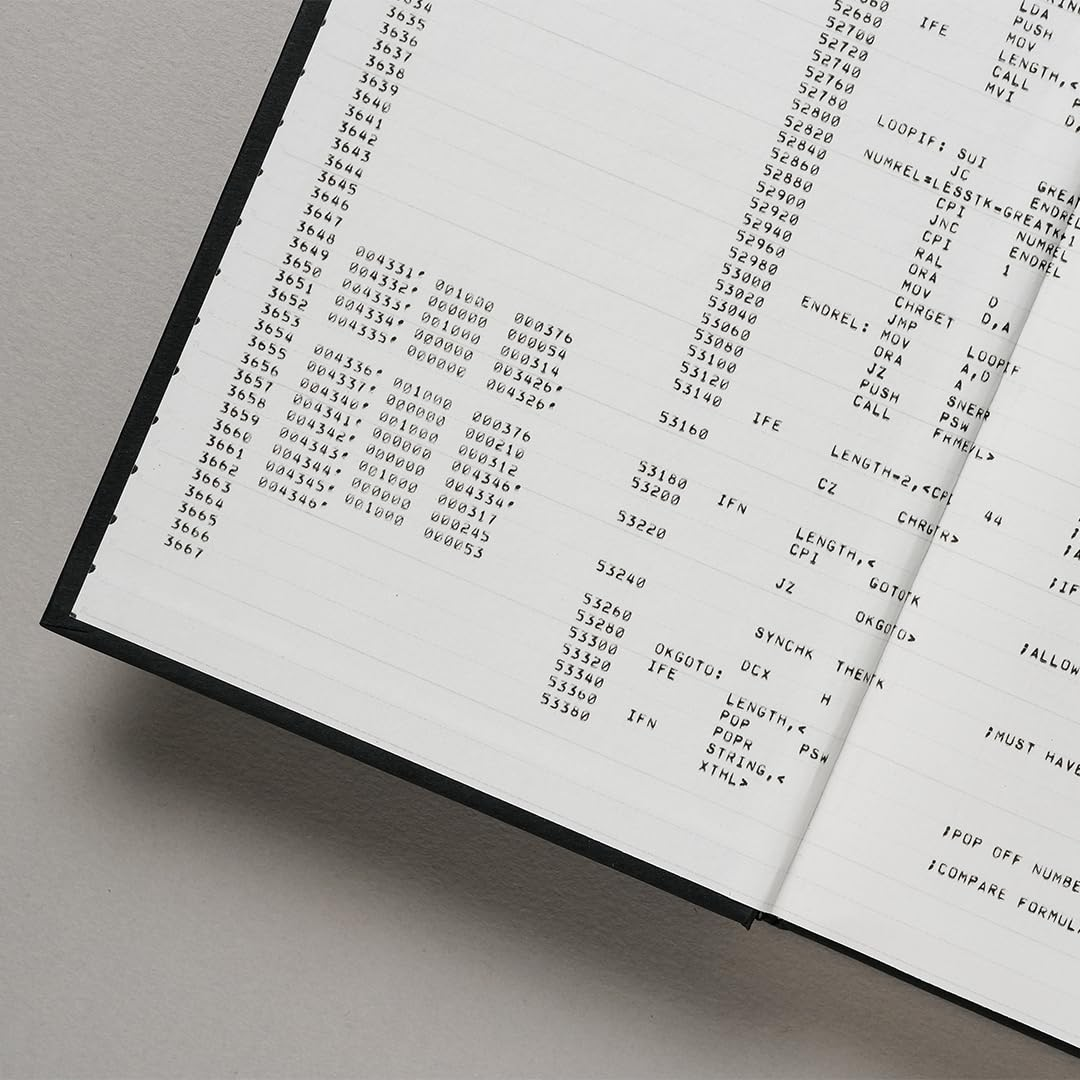 LDA
PUSH
MOV
IFE LENGTH,<
52680 CALL
52700 MVI D,
52720
52740
52760
52780 LOOPIF: SUI GREAT
52800 JC ENDREL
52820 NUMREL=LESSTK-GREATK+1
52840 CPI NUMREL
52860 JNC ENDREL
3635 52880 CPI 1
3636 52900 RAL
3637 52920 ORA D
3638 52940 MOV D,A
3639 52960 CHRGET
3640 52980 JMP LOOPIF
3641 53000 ENDREL: MOV A,D
3642 53020 ORA A
3643 53040 JZ SNERR
3644 53060 PUSH PSW
3645 53080 CALL FRMEVL>
3646 53100
3647 53120
3648 004331' 001000 000376 53140 IFE LENGTH=2,<CPI 44
3649 004332' 000000 000054
3650 004333' 001000 000314 53160 CZ CHRGTR>
3651 004334' 000000 003426'
3652 004335' 000000 004326'
3653 53180 IFN LENGTH,<
3654 004336' 001000 000376 53200 CPI GOTOTK
3655 004337' 000000 000210
3656 004340' 001000 000312 53220 JZ OKGOTO>
3657 004341' 000000 004346'
3658 004342' 000000 004334'
3659 004343' 001000 000317 53240 SYNCHK THENTK ;ALLOW
3660 004344' 000000 000245
3661 004345' 53260
3662 004346' 001000 000053 53280 OKGOTO: DCX H ;MUST HAVE
3663 53300 IFE LENGTH,<
3664 53320 POP PSW
3665 53340 POPR ;POP OFF NUMBE
3666 53360 IFN STRING,<
3667 53380 XTHL> ;COMPARE FORMUL